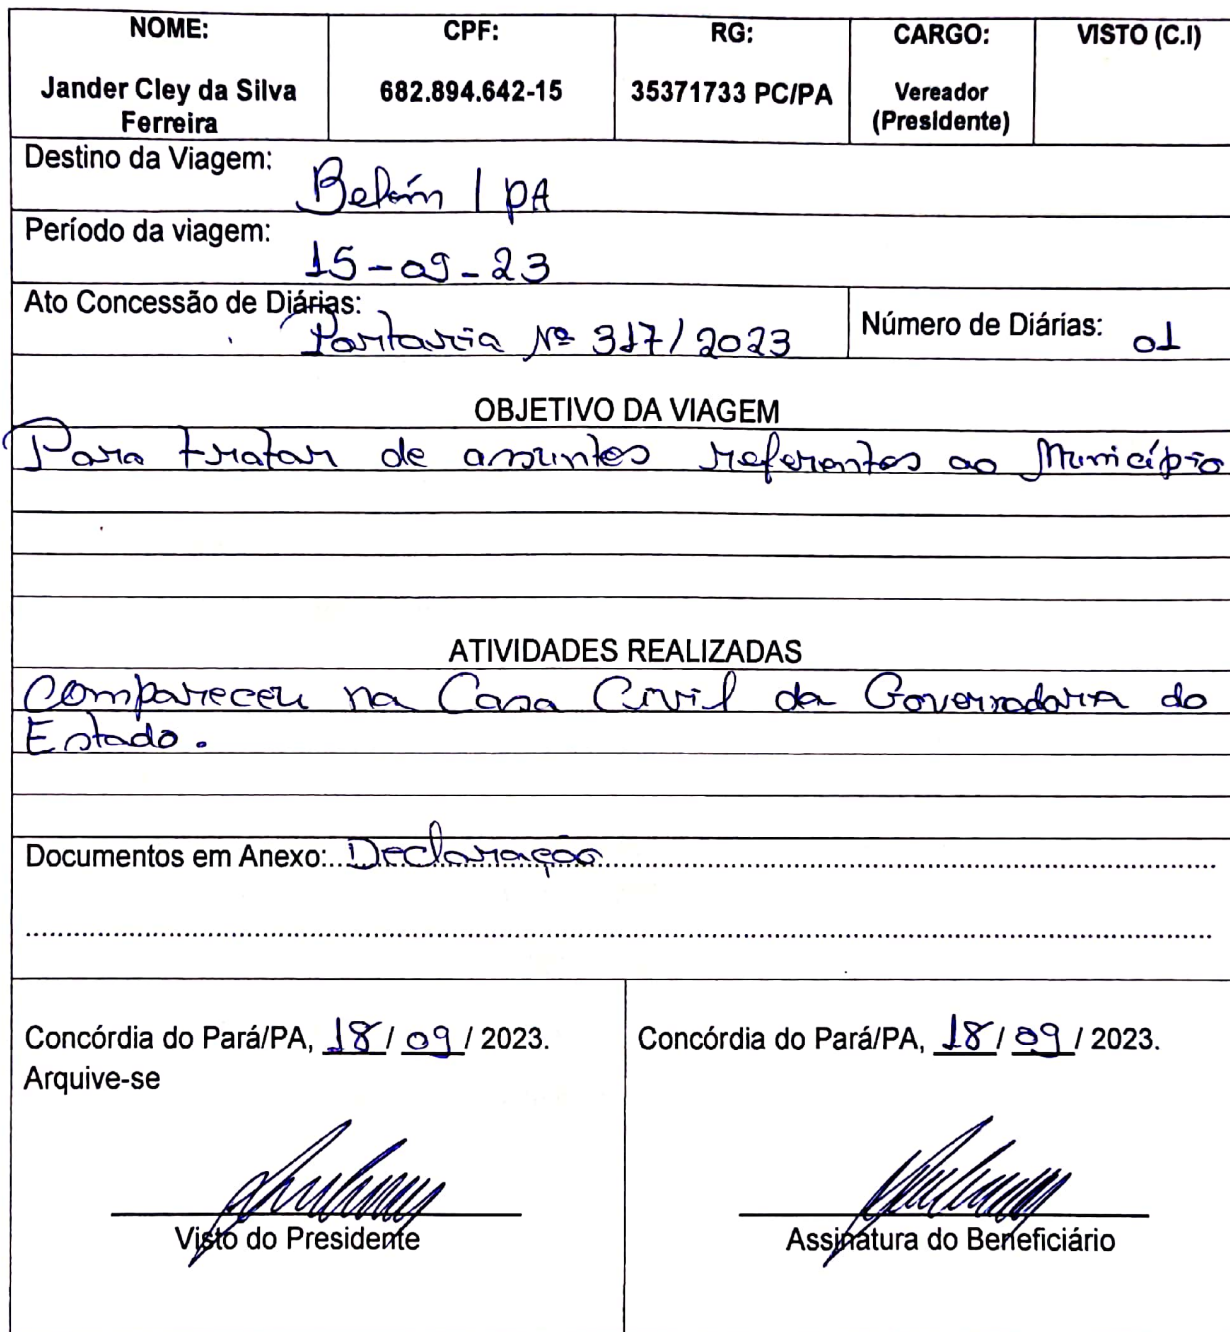 NOME: CPF: RG: CARGO: VISTO (C.I)
Jander Cley da Silva Ferreira 682.894.642-15 35371733 PC/PA Vereador (Presidente)
Destino da Viagem: Belém / PA
Período da viagem: 15-09-23
Ato Concessão de Diárias: Portaria Nº 317/2023 Número de Diárias: 01
OBJETIVO DA VIAGEM
Para tratar de assuntos referentes ao Município
ATIVIDADES REALIZADAS
Compareceu na Casa Civil da Governadoria do
Estado.
Documentos em Anexo: Declaração
Concórdia do Pará/PA, 18/09/2023.
Arquive-se
Visto do Presidente
Concórdia do Pará/PA, 18/09/2023.
Assinatura do Beneficiário